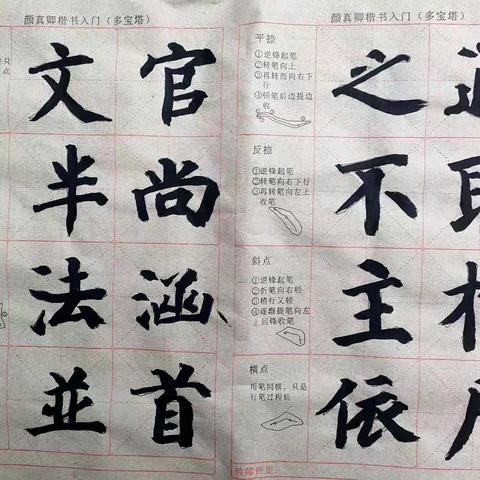 颜真卿楷书入门（多宝塔）
文 官
半 尚
法 涵
並 首
颜真卿楷书入门（多宝塔）
平捺
①逆锋起笔
②转笔向上
③再转而向右下
行
④顿笔后边提边
收
之
反捺
①逆锋起笔
②转笔向右下行
③再转笔向左上
收笔
不
斜点
①逆锋起笔
②折笔向右顿
③稍行又顿
④逐渐提笔向左
上回锋收笔
主
横点
用笔同横，只是
行笔过程短
依
教师评定：